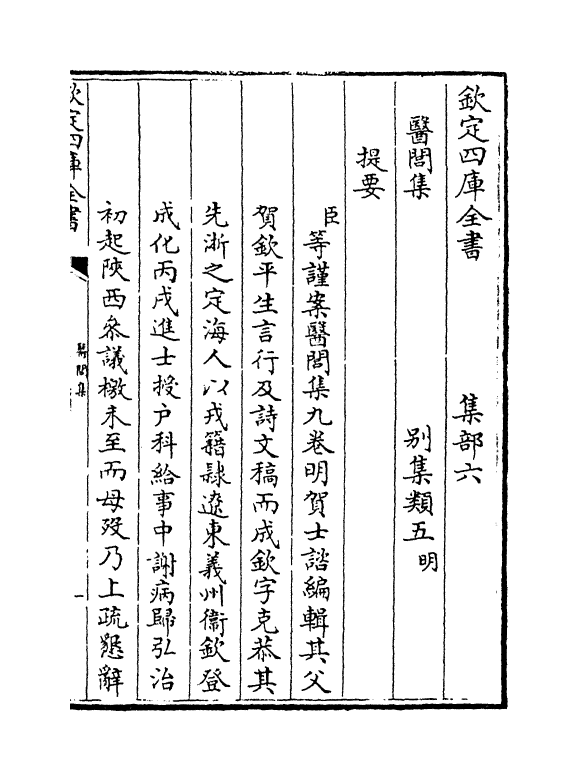 欽定四庫全書　集部六
醫閭集　別集類五明
提要
臣等謹案醫閭集九卷明賀士諮編輯其父
賀欽平生言行及詩文稿而成欽字克恭其
先浙之定海人以戎籍隸遼東義州衞欽登
成化丙戌進士授户科給事中謝病歸弘治
初起陜西叅議檄未至而母歿乃上疏懇辭
欽定四庫全書
醫閭集
一